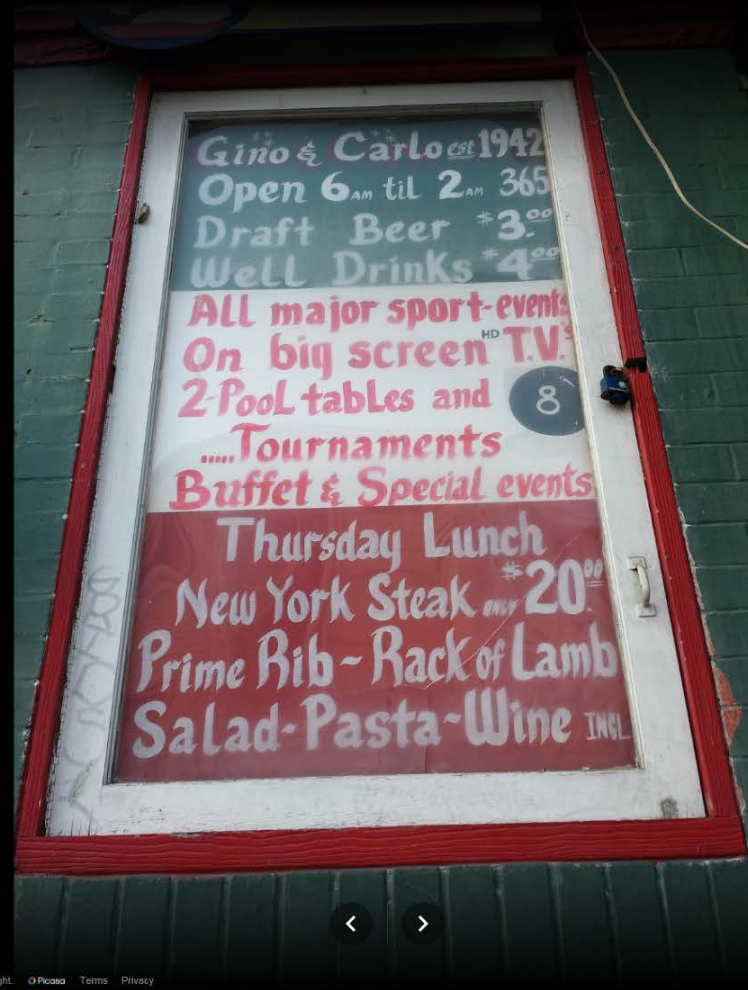 Gino & Carlo est 1942
Open 6AM til 2AM 365
Draft Beer $3.00
Well Drinks $4.00
All major sport-events
On big screen HD T.V.'s
2-Pool tables and 8
.....Tournaments
Buffet & Special events
Thursday Lunch
New York Steak only $20.00
Prime Rib ~ Rack of Lamb
Salad-Pasta-Wine INCL
ght.
Picasa Terms Privacy